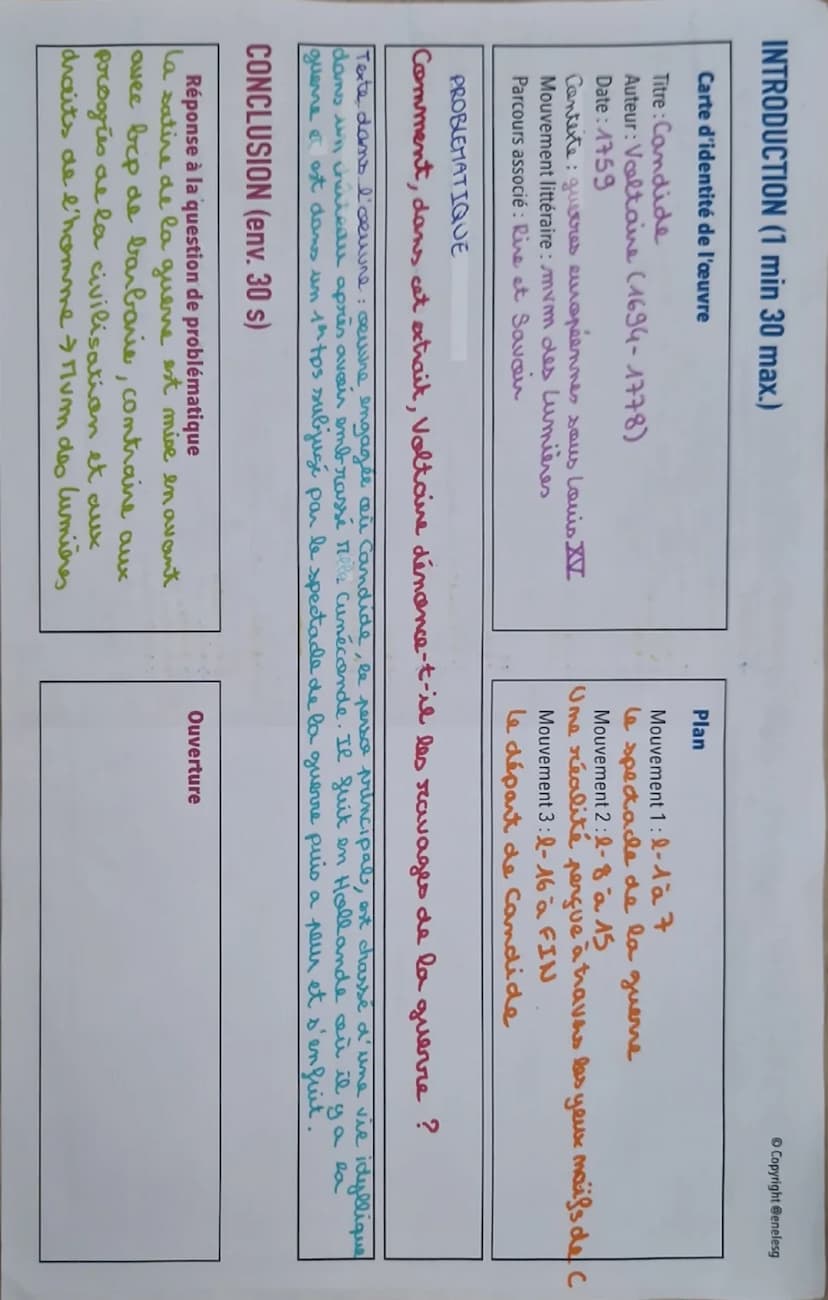 INTRODUCTION (1 min 30 max.)
© Copyright @enelesg
Carte d'identité de l'œuvre
Titre : Candide
Auteur : Voltaire (1694-1778)
Date : 1759
Contexte : guerres européennes sous Louis XV
Mouvement littéraire : mvm des Lumières
Parcours associé : Rire et Savoir
Plan
Mouvement 1 : l-1 à 7
Le spectacle de la guerre
Mouvement 2 : l-8 à 15
Une réalité perçue à travers les yeux naïfs de C
Mouvement 3 : l-16 à FIN
Le départ de Candide
PROBLEMATIQUE
Comment, dans cet extrait, Voltaire dénonce-t-il les ravages de la guerre ?
Texte dans l'œuvre : œuvre engagée où Candide, le perso principal, est chassé d'une vie idyllique
dans un château après avoir embrassé Mlle Cunéconde. Il fuit en Hollande où il y a la
guerre et est dans un 1er tps subjugé par le spectacle de la guerre puis a peur et s'enfuit.
CONCLUSION (env. 30 s)
Réponse à la question de problématique
La satire de la guerre est mise en avant
avec bcp de barbarie, contraire aux
progrès de la civilisation et aux
droits de l'homme → Mvm des Lumières
Ouverture